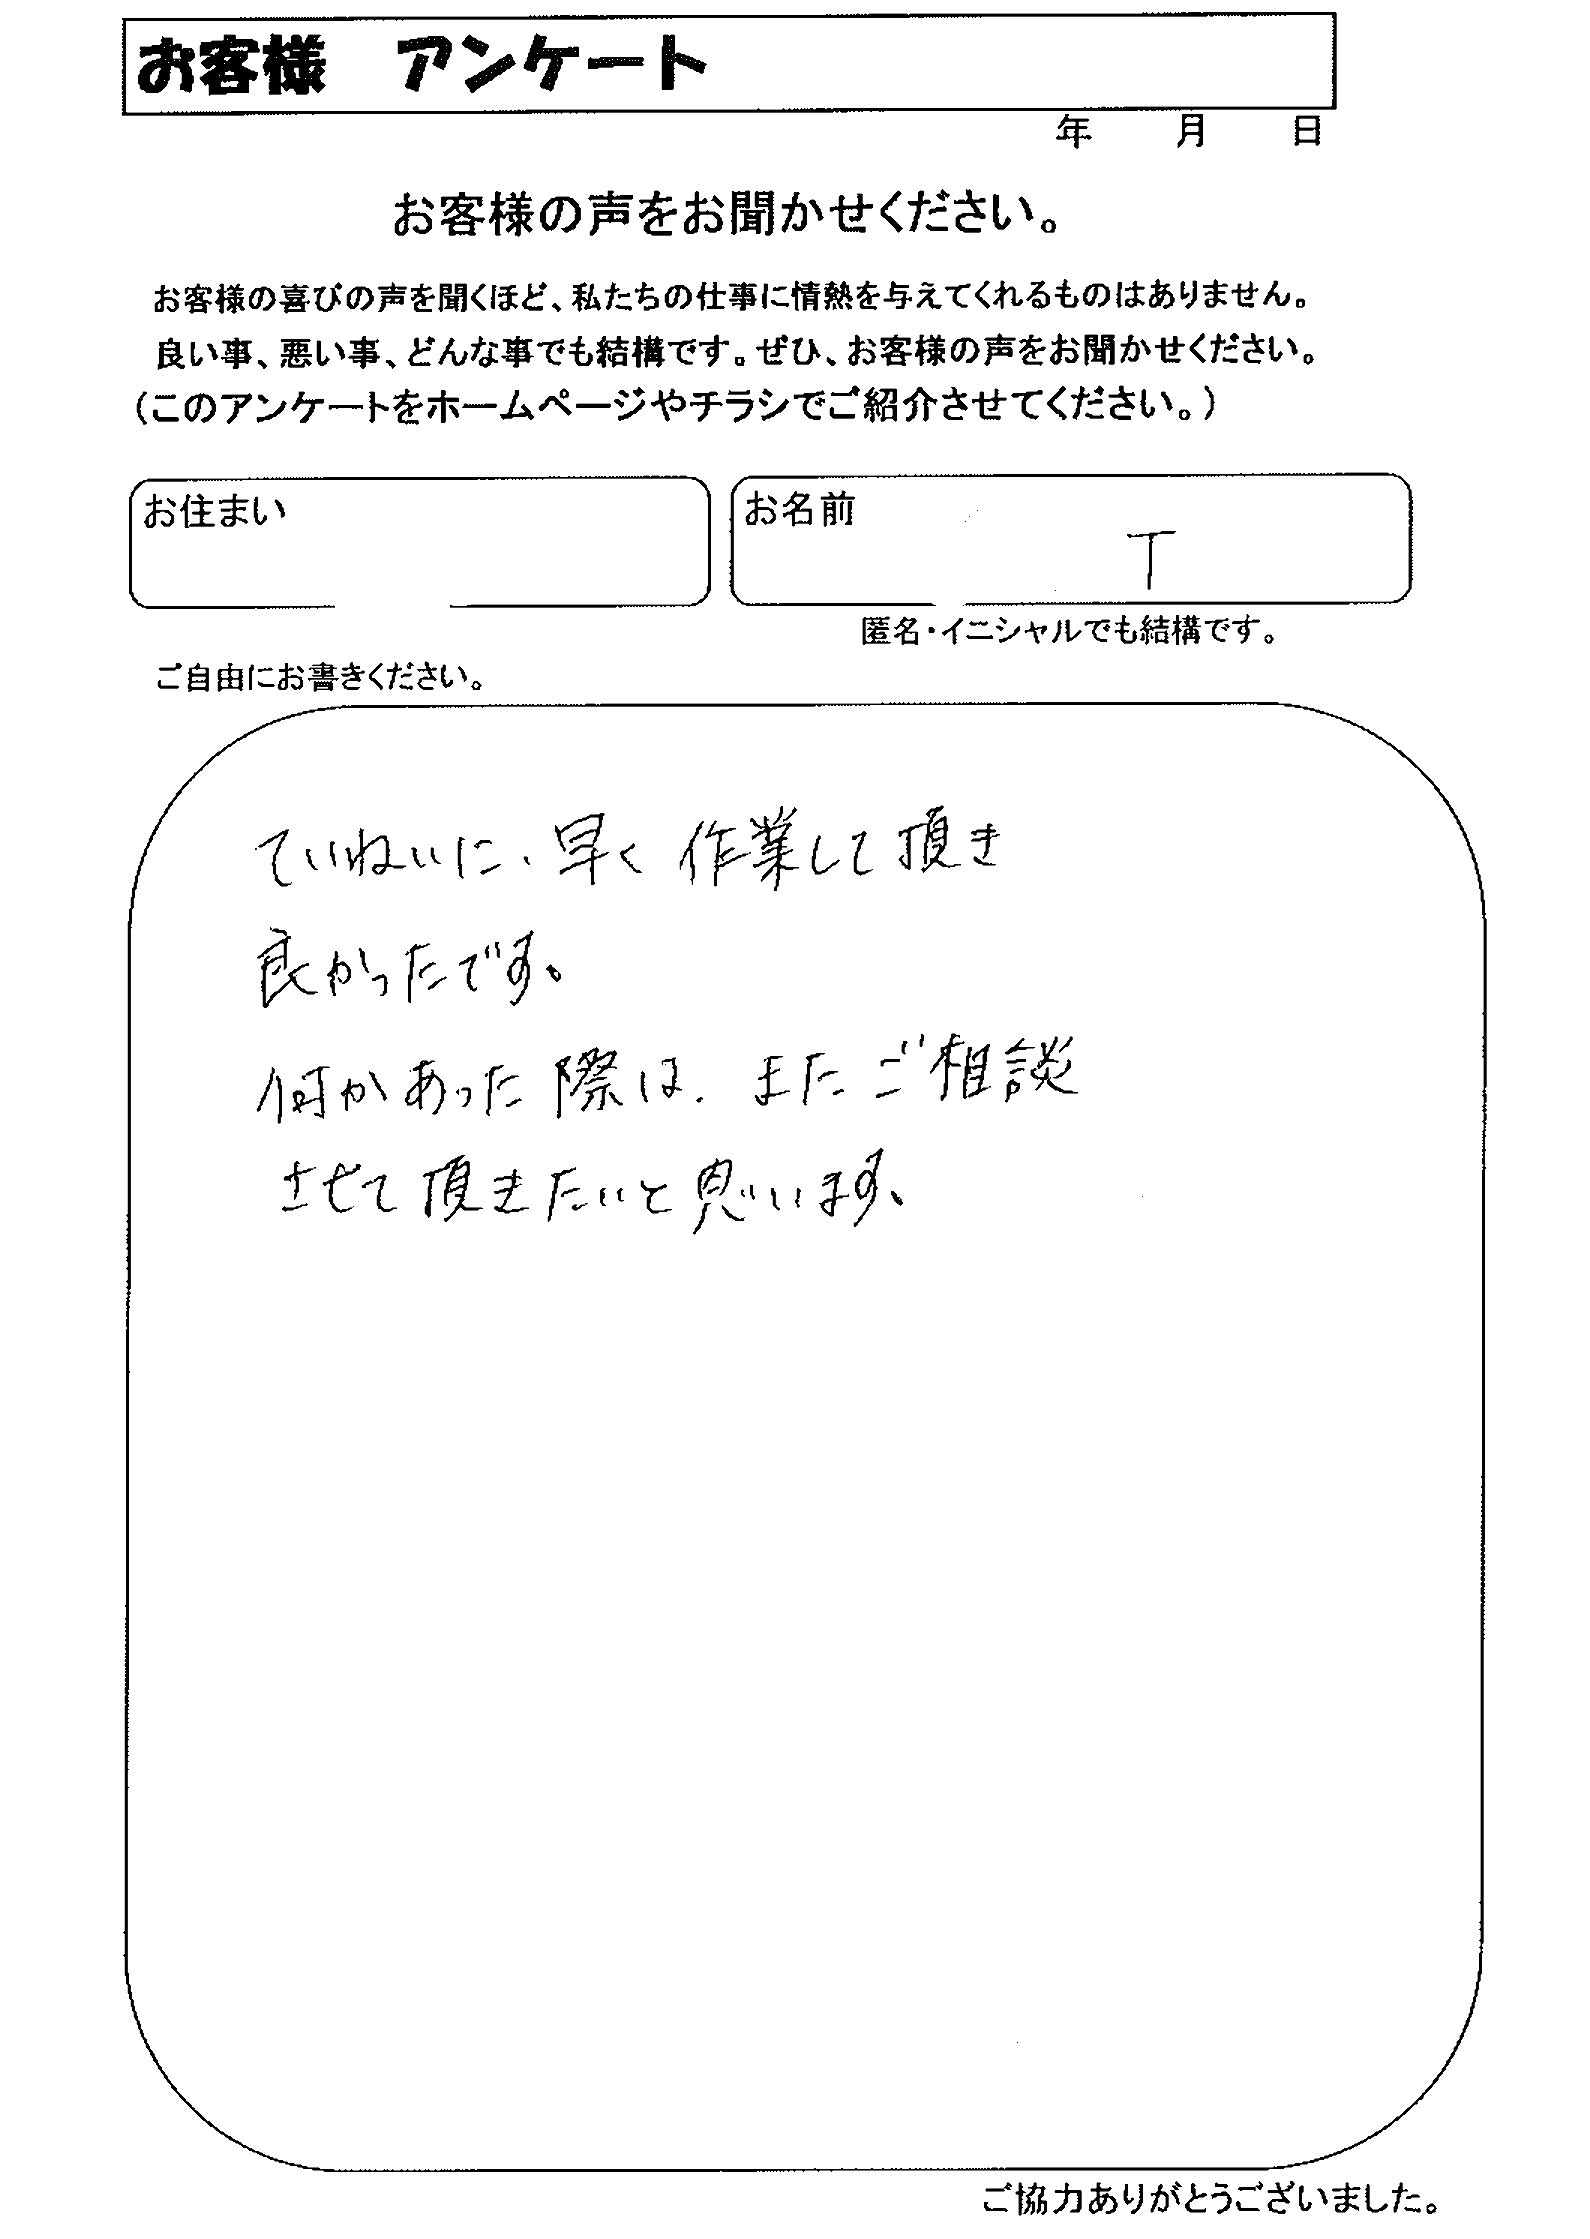 お客様　アンケート
年　月　日
お客様の声をお聞かせください。
お客様の喜びの声を聞くほど、私たちの仕事に情熱を与えてくれるものはありません。
良い事、悪い事、どんな事でも結構です。ぜひ、お客様の声をお聞かせください。
（このアンケートをホームページやチラシでご紹介させてください。）
お住まい
お名前
T
匿名・イニシャルでも結構です。
ご自由にお書きください。
ていねいに、早く作業して頂き
良かったです。
何かあった際は、またご相談
させて頂きたいと思います、
ご協力ありがとうございました。